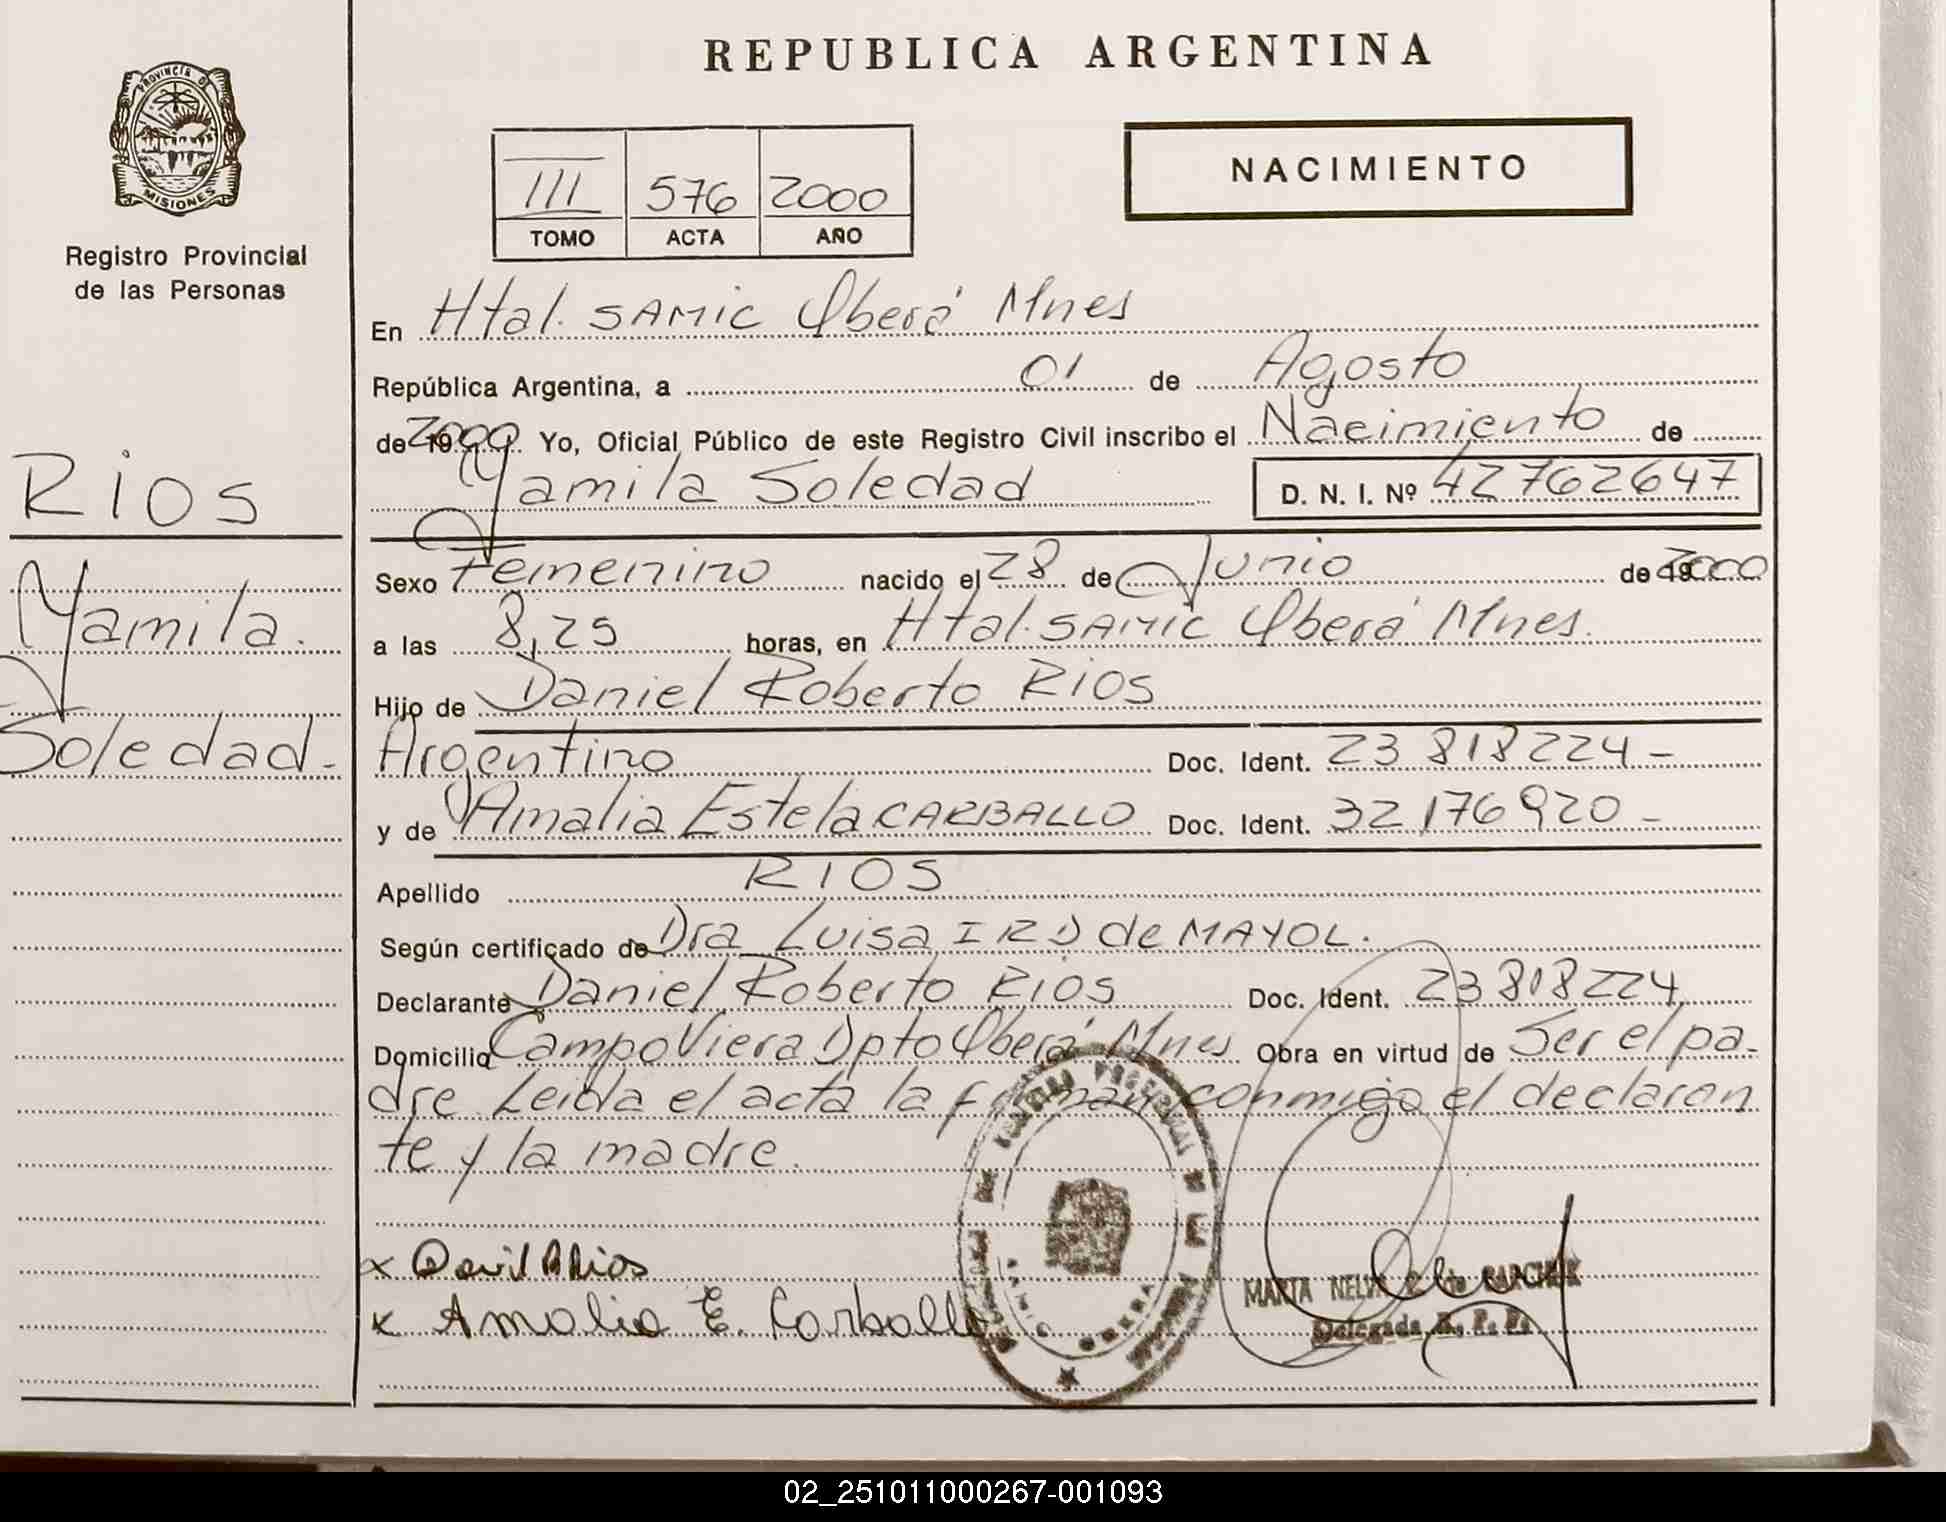 REPUBLICA ARGENTINA
PROVINCIA DE
MISIONES
Registro Provincial
de las Personas
III 576 2000
TOMO ACTA AÑO
NACIMIENTO
En Htal. SAMIC Oberá Mnes
República Argentina, a 01 de Agosto
de 2000 Yo, Oficial Público de este Registro Civil inscribo el Nacimiento de
Yamila Soledad D. N. I. Nº 42762647
RIOS
Yamila
Soledad
Sexo Femenino nacido el 28 de Junio de 2000
a las 8,25 horas, en Htal. SAMIC Oberá Mnes.
Hijo de Daniel Roberto RIOS
Argentino Doc. Ident. 23 818 224 -
y de Amalia Estela CARBALLO Doc. Ident. 32 176 920 -
Apellido RIOS
Según certificado de Dra Luisa de MAYOL.
Declarante Daniel Roberto RIOS Doc. Ident. 23 818 224
Domicilio Campo Viera Dpto Oberá Mnes Obra en virtud de Ser el pa-
dre Leida el acta la firman conmigo el declaran
te y la madre.
x Rios
x Amalia E. Carballo
MARTA
Delegada R. P. P.
OBERA
02_251011000267-001093